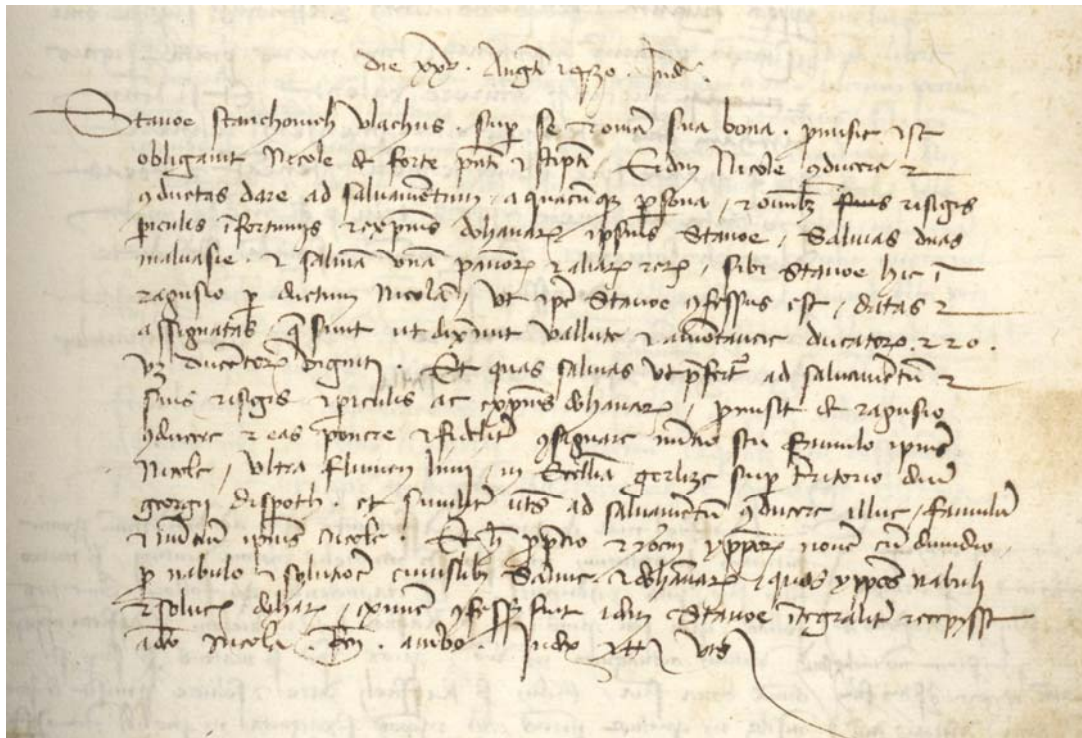 die xxv. Augti 1430. Ind.
Stanoe stanchouich Vlachus. sup se et omia sua bona. promisit et se
obligauit Nicole de forte pnti et stipti, Eidem Nicole conducere et
conductas dare ad saluamentum, a quacunqz persona, et omnibz suis risigis
periculis infortunijs et expensis dohanarum ipsius Stanoe, Salmas duas
maluasie. et salmam vnam pannorum et aliarum rerum, sibi Stanoe hic in
ragusio per dictum Nicolam, ut ipse Stanoe confessus est, datas et
assignatas, que sunt ut dixerunt vallute et amontancie ducatorum. 220.
vz ducentorum viginti. Et quas salmas ut prefertur ad saluamentum et
suis risigis et periculis ac expensis dohanarum, promisit de ragusio
conducere et eas ponere et fideliter consignare nuntio seu famulo ipsius
Nicole, Vltra flumen limi, in gerlize sup territorio dni
georgii dispoth. et similiter uts ad saluamentum conducere illuc, famulum
et nuntium ipsius Nicole. Et h precio et yppororum nouem cum dimidio,
per nabulo et solutione cuiuslibz Salme, et dohanarum, quos ypperos nabuli
et solucionem dohanarum, ex nunc confessus fuit idem Stanoe integraliter recepisse
a dicto Nicola. ambo. Judex uts